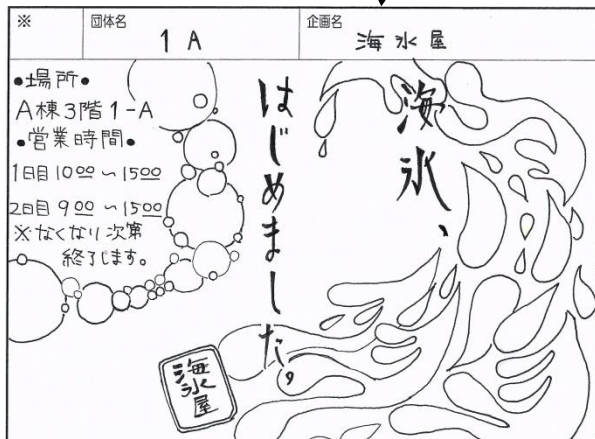 ※
団体名
1A
企画名
海氷屋
•場所•
A棟3階1-A
•営業時間•
1日目10:00～15:00
2日目9:00～15:00
※なくなり次第
終了します。
海氷、
はじめました。
海氷屋